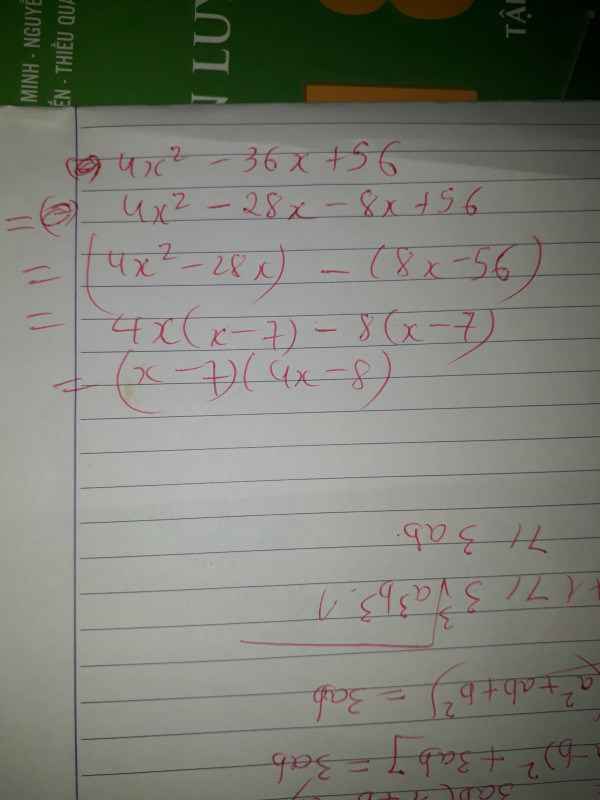 MINH - NGUYỄ
ẾN - THIỀU QUA
N LUY
TẬP
4x² - 36x + 56
= 4x² - 28x - 8x + 56
= (4x² - 28x) - (8x - 56)
= 4x(x - 7) - 8(x - 7)
= (x - 7)(4x - 8)
a²+ab+b²) = 3ab
-b)² + 3ab] = 3ab